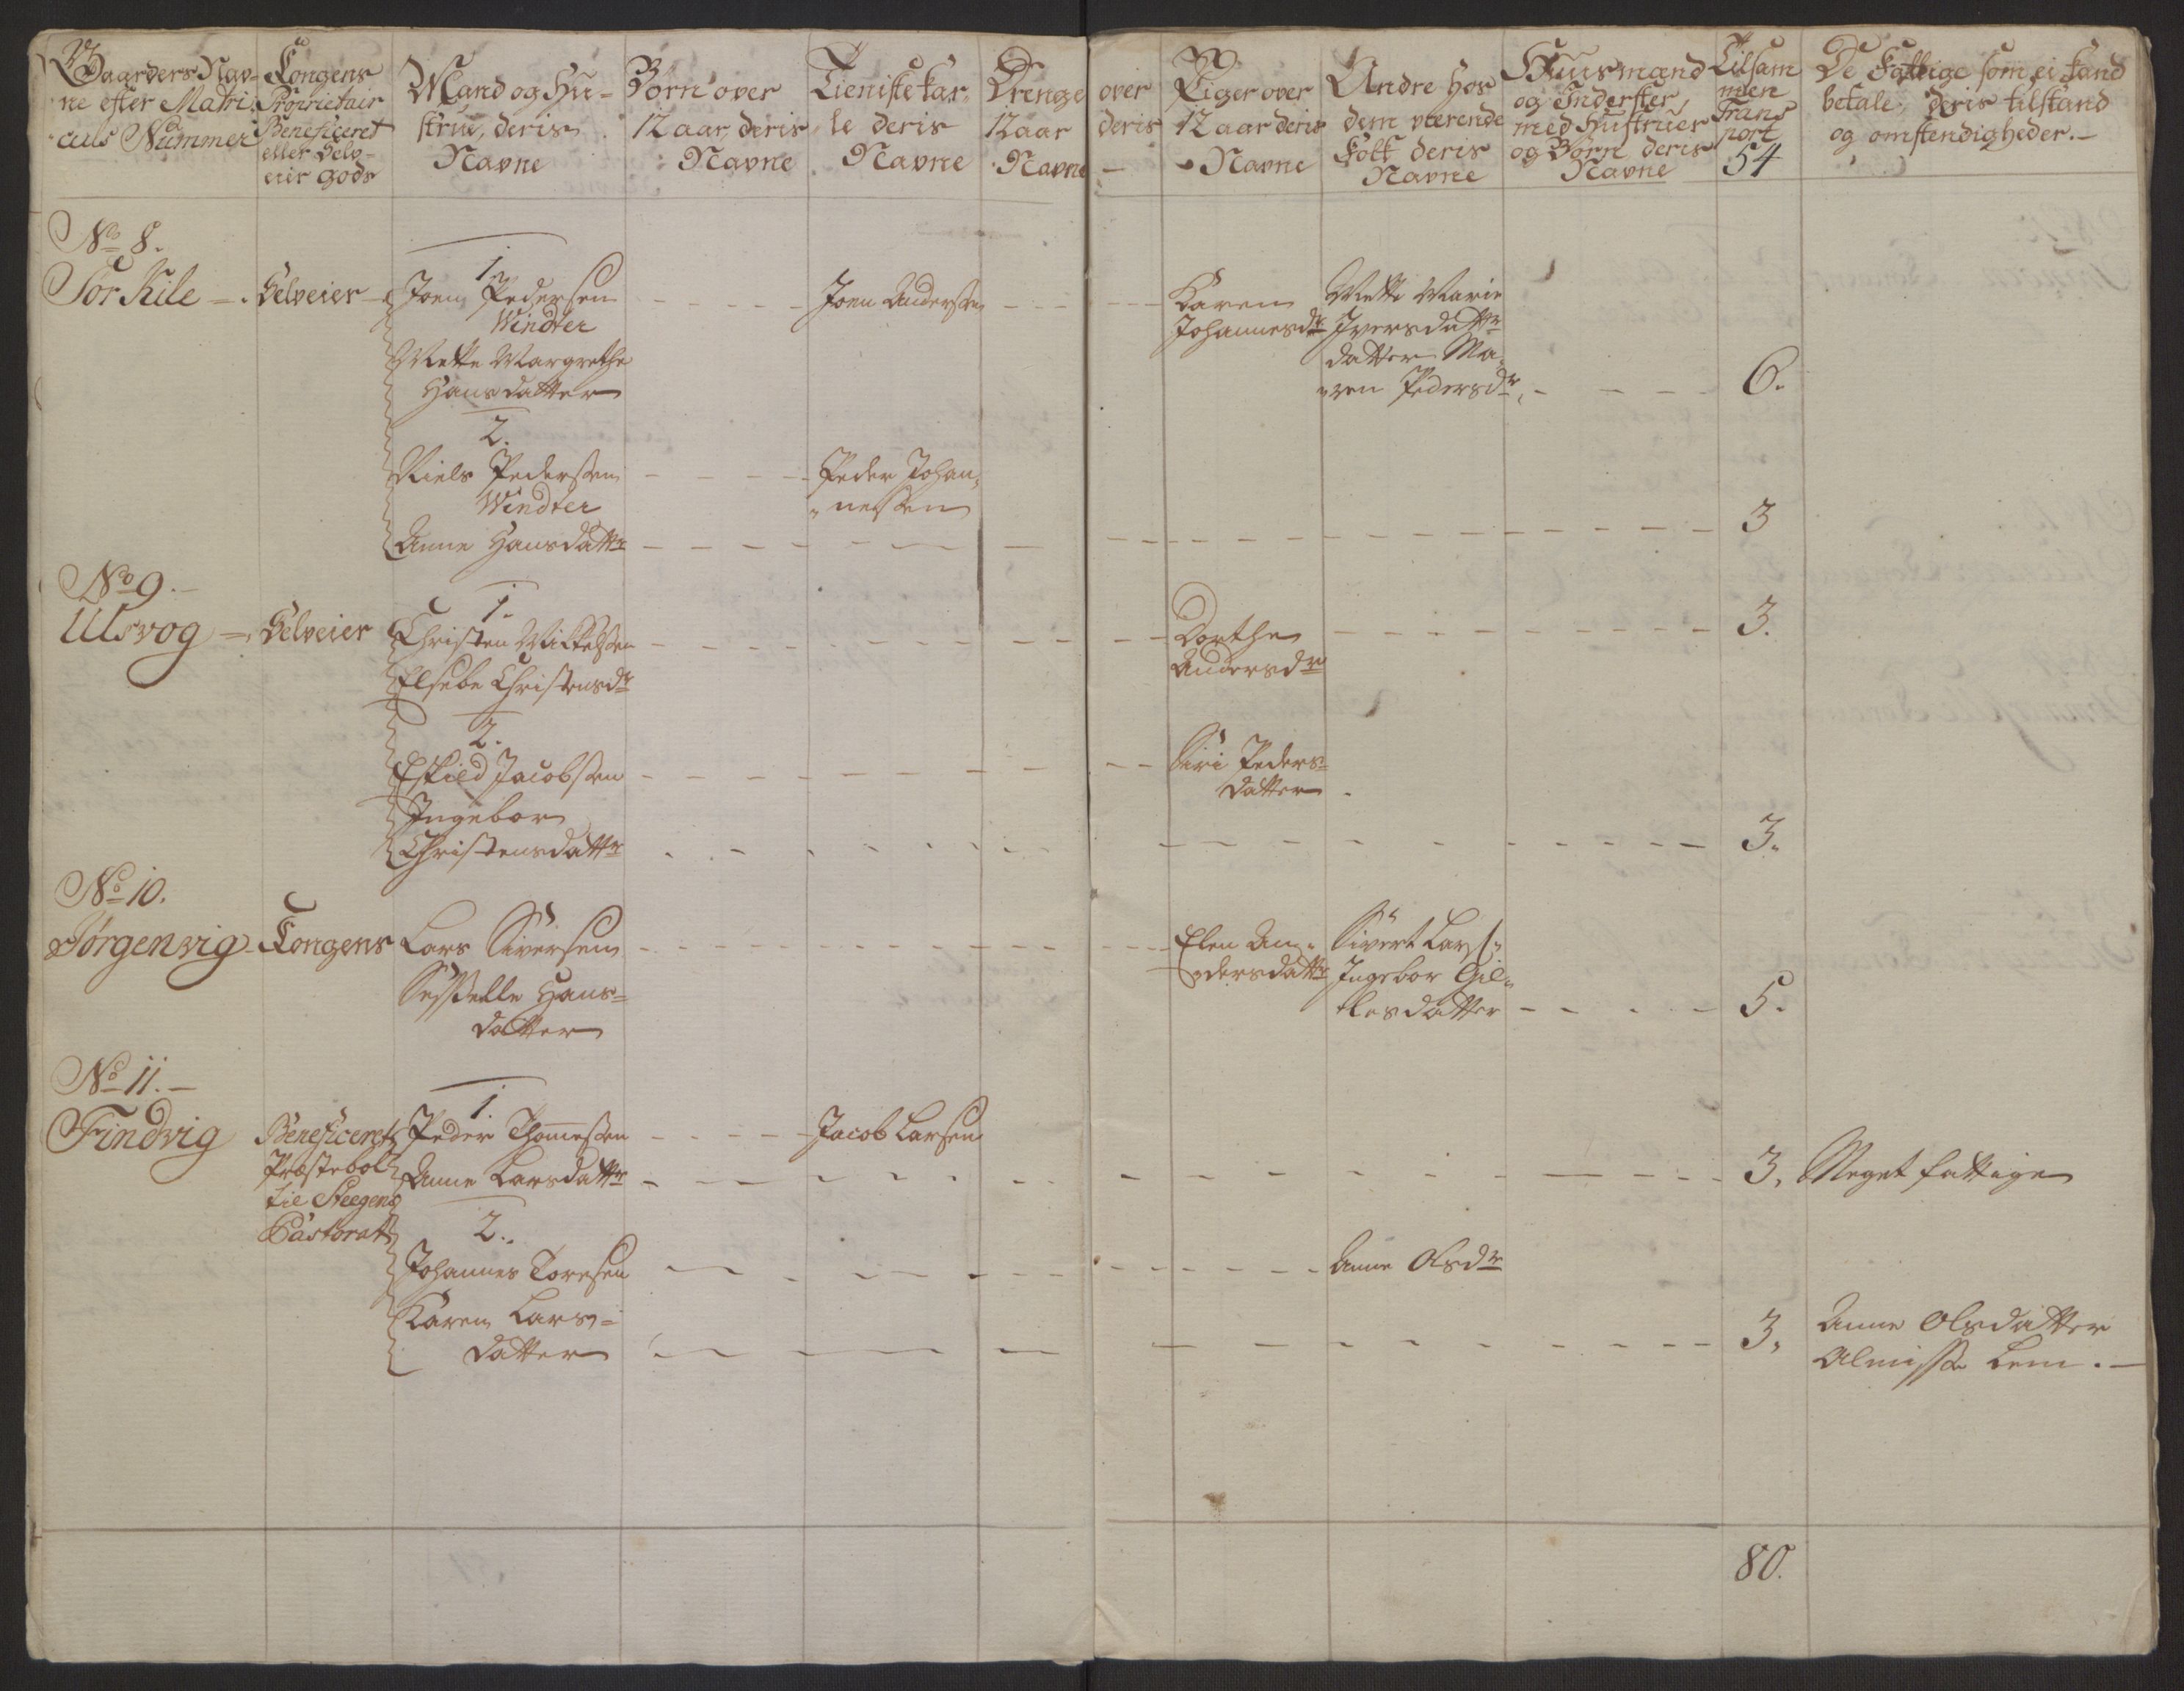 Gaarders Nav-
ne efter Matri
culs Nummer
Kongens
Proprietair
Beneficeret
eller Selv-
eier gods
Mand og Hu-
strue, deris
Navne
Børn over
12 aar, deris
Navne
Tieniste Kar-
le deris
Navne
Drenge over
12 aar deris
Navne —
Piger over
12 aar deris
Navne
Andre hos
dem værende
Folk deris
Navne
Huusmænd
og Inderster,
med Hustruer
og Børn deris
Navne
Tilsam
men
Trans
port
54
De Fattige som ei kand
betale, deris tilstand
og omstendigheder.—
No 8.
Sør Kile
Selveier
1.
Joen Pedersen
Windter
Mette Margrethe
Hansdatter
Joen Andersen
Karen
Johannesdr
Mette Marie
Iversdattr
datter Ma-
ren Pedersdr
6.
2.
Niels Pedersen
Windter
Anne Hansdattr
Peder Johan-
nessen
3
No 9.
Ulsvog
Selveier
1.
Christen Mikkelsen
Elsebe Christensdr
Dorthe
Andersdr
3.
2.
Eskild Jacobsen
Ingebor
Christensdattr
Siri Peders-
datter
3.
No 10.
Jørgenvig
Kongens
Lars Siversen
Sidselle Hans-
datter
Elen An-
dersdattr
Sivert Lars:
Ingebor Gil-
lesdatter
5.
No 11.
Findvig
Beneficeret
Præstebol
til Steegens
Pastorat
1.
Peder Thomesen
Anne Larsdattr
Jacob Larsen
3.
Meget fattige
2.
Johannes Toresen
Karen Lars-
datter
Anne Olsdr
3.
Anne Olsdatter
Almisse Lem.—
80.